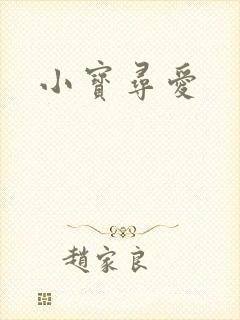 小寶尋愛
趙家良